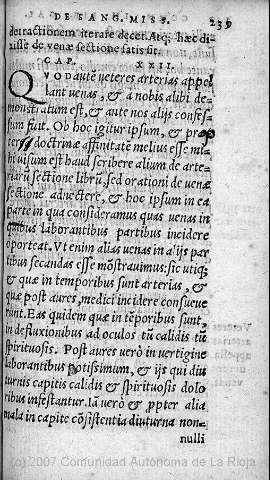 DE SANG. MISS. 239
detractionem iterare decet. Atq; hæc di-
xisse de venæ sectione satis sit.
CAP. XXII.
QVOD autē veteres arterias appel
lant venas, & a nobis alibi de-
monstratum est, & ante nos alijs confes-
sum fuit. Ob hoc igitur ipsum, & prop
ter doctrinæ affinitatem melius esse mi-
hi visum est haud scribere alium de arte-
riarū sectione librū, sed orationi de venæ
sectione adnectere, & hoc ipsum in ea
parte in qua consideramus quas venas in
quibus laborantibus partibus incidere
oporteat. Vt enim alias venas in alijs par
tibus secandas esse mōstrauimus: sic utiq;
& quæ in temporibus sunt arterias, &
quæ post aures, medici incidere consueue
runt. Eas quidem quæ in tēporibus sunt,
in defluxionibus ad oculos tū calidis tū
spirituosis. Post aures verò in vertigine
laborantibus potissimum, & ijs qui diu
turnis capitis calidis & spirituosis dolo
ribus infestantur. Ia verò & ꝓpter alia
mala in capite cōsistentia diuturna non-
nulli
(c) 2007 Comunidad Autónoma de La Rioja